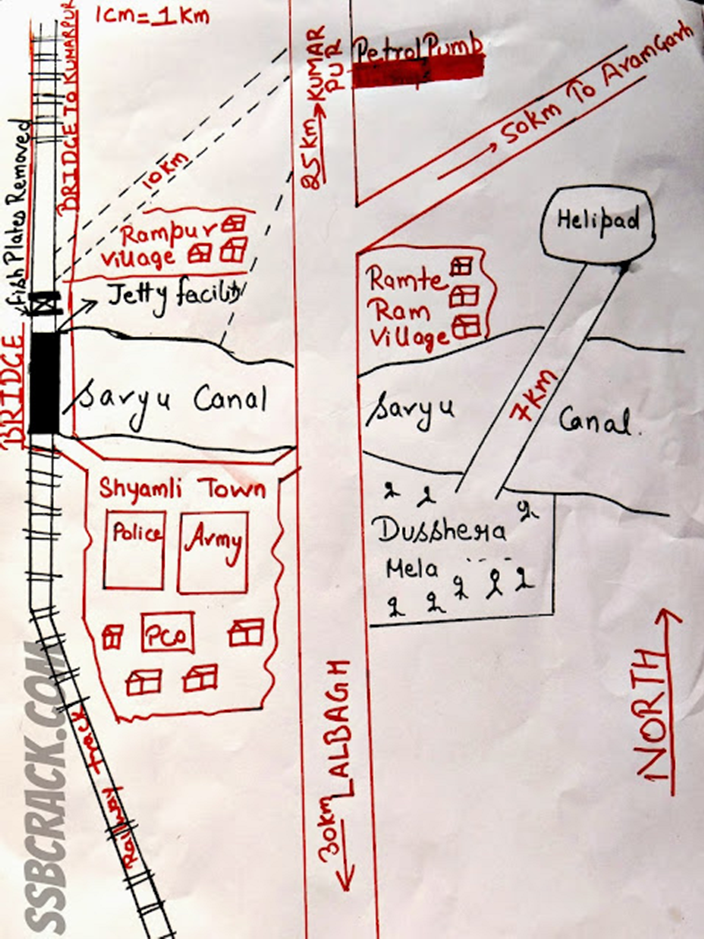 1cm=1Km
BRIDGE TO KUMARPUR
Fish Plates Removed
BRIDGE
10Km
25Km
KUMAR
PUR
Petrol Pumb
50Km To AramGarh
Helipad
Rampur
Village
Jetty facility
Ramte
Ram
Village
Saryu Canal
Saryu
Canal.
7KM
Shyamli Town
Police
Army
PCO
Dusshera
Mela
30km LALBAGH
NORTH
Railway Track
SSBCRACK.COM